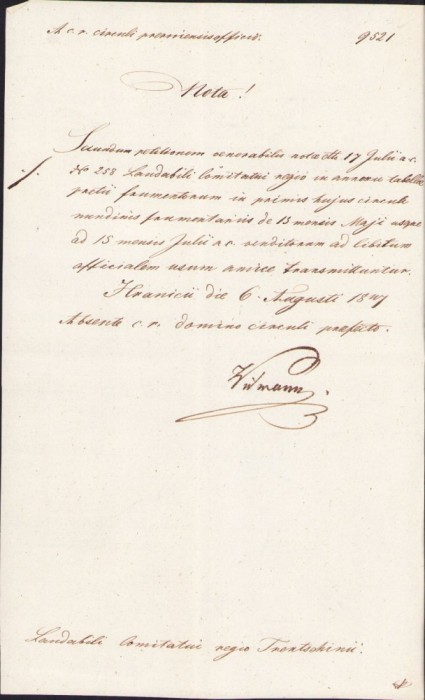 A c. r. circuli preroviensis officio.
9521
Nota!
Secundum petitionem venerabilis notae dto 17 Julii a c.
./. No 288 Laudabili Comitatui regio in annexu tabellae
pretii frumentorum in primis hujus circuli
nundinis frumentariis de 15 mensis Maji usque
ad 15 mensis Julii a. c. venditorum ad libitum
officialem usum amice transmittuntur.
Hranicii die 6. Augusti 1847
Absente c. r. domino circuli prefecto.
Widmann.
Laudabili Comitatui regio Trentschinii.